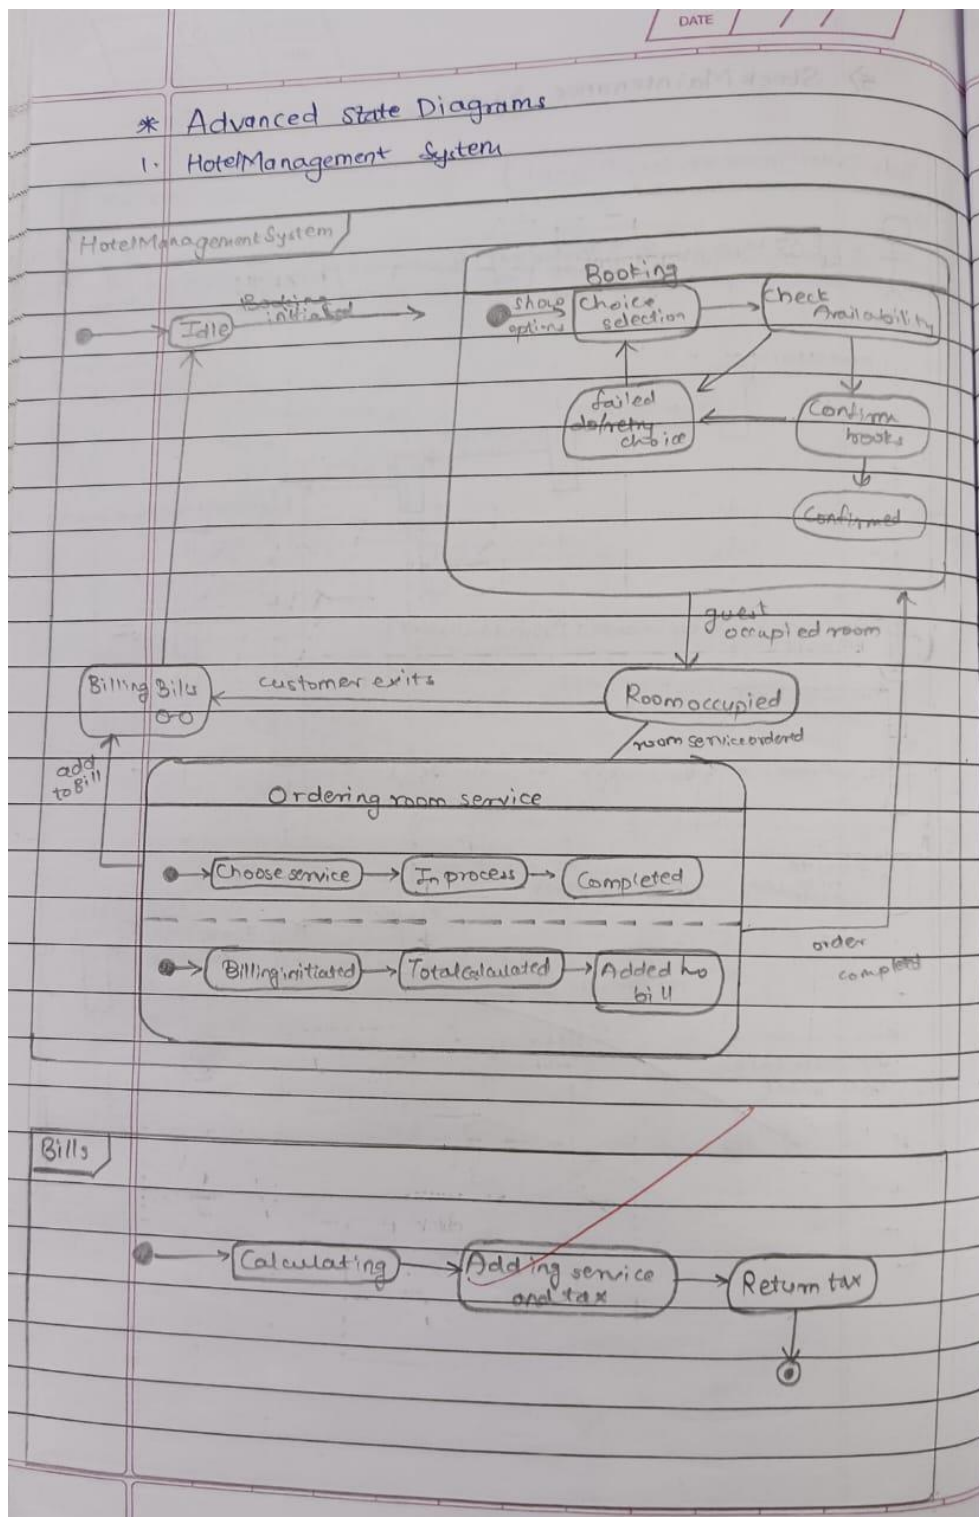 DATE
* Advanced State Diagrams
1. HotelManagement System
HotelManagementSystem
Booking
Idle
Booking
initiated
show
options
Choice
selection
Check
Availability
failed
do/retry
choice
Confirm
books
Confirmed
guest
occupied room
Billing Bills
customer exits
Room occupied
room service ordered
add
to Bill
Ordering room service
Choose service
In process
Completed
order
complete
Billing initiated
Total calculated
Added to
bill
Bills
Calculating
Adding service
and tax
Return tax